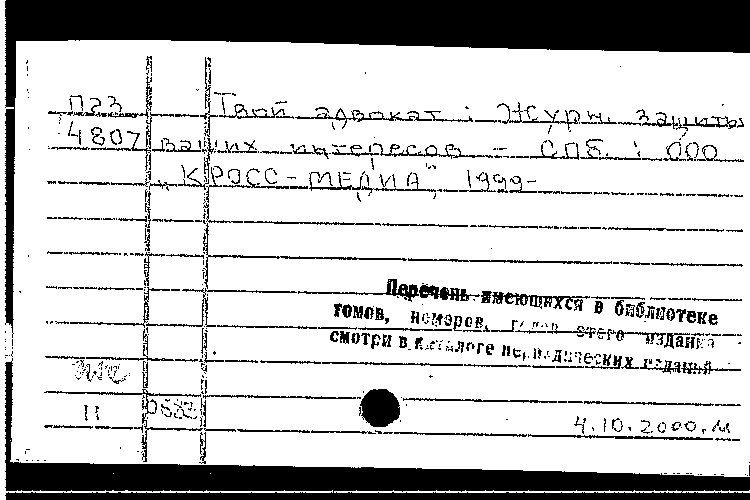 П23 Твой адвокат : Журн. защиты
4807 ваших интересов - СПБ. : ООО
„КРОСС-МЕДИА", 1999-
Перечень имеющихся в библиотеке
томов, номеров, годов этого издания
смотри в каталоге периодических изданий
II
4.10.2000.м